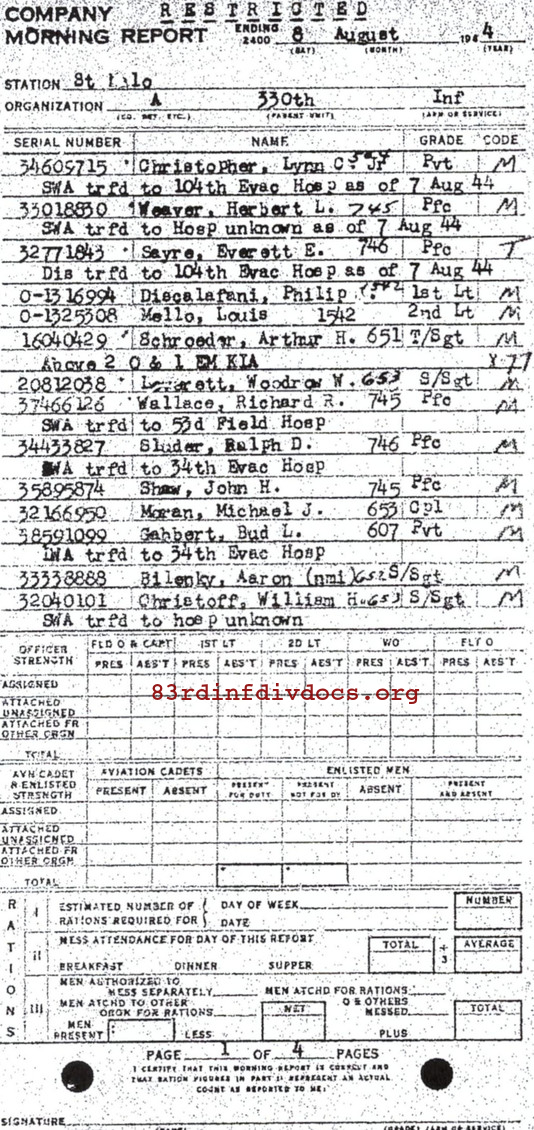 COMPANY RESTRICTED
MORNING REPORT ENDING 2400 8 August 1944
(DAY) (MONTH) (YEAR)
STATION St
ORGANIZATION A 330th Inf
(CO. DET. ETC.) (PARENT UNIT) (ARM OR SERVICE)
SERIAL NUMBER NAME GRADE CODE
34609715 Christopher, Lynn C. Jr Pvt M
SWA trfd to 104th Evac Hosp as of 7 Aug 44
33018830 Weaver, Herbert L. 745 Pfc M
SWA trfd to Hosp unknown as of 7 Aug 44
32771843 Sayre, Everett E. 746 Pfc T
Dis trfd to 104th Evac Hosp as of 7 Aug 44
O-1316994 Discalafani, Philip 1st Lt M
O-1325308 Mello, Louis 1542 2nd Lt M
16040429 Schroeder, Arthur H. 651 T/Sgt M
Above 2 O & 1 EM KIA X-77
20812038 Woodrow W. 653 S/Sgt M
37466126 Wallace, Richard R. 745 Pfc M
SWA trfd to 53d Field Hosp
34433827 Sluder, Ralph D. 746 Pfc M
SWA trfd to 34th Evac Hosp
35895874 Shaw, John H. 745 Pfc M
32166950 Moran, Michael J. 653 Cpl M
38591099 Gabbert, Bud L. 607 Pvt M
LWA trfd to 34th Evac Hosp
33338888 Bilenky, Aaron (nmi) 652 S/Sgt M
32040101 Christoff, William H. 653 S/Sgt M
SWA trfd to hosp unknown
OFFICER STRENGTH FLD O & CAPT 1ST LT 2D LT WO FLT O
PRES ABS'T PRES ABS'T PRES ABS'T PRES ABS'T PRES ABS'T
ASSIGNED
83rdinfdivdocs.org
ATTACHED UNASSIGNED
ATTACHED FR OTHER ORGN
TOTAL
AVN CADET & ENLISTED STRENGTH AVIATION CADETS ENLISTED MEN
PRESENT ABSENT PRESENT FOR DUTY PRESENT NOT FOR DY ABSENT PRESENT AND ABSENT
ASSIGNED
ATTACHED UNASSIGNED
ATTACHED FR OTHER ORGN
TOTAL
RATIONS
I ESTIMATED NUMBER OF DAY OF WEEK NUMBER
RATIONS REQUIRED FOR DATE
II MESS ATTENDANCE FOR DAY OF THIS REPORT TOTAL ÷ 3 AVERAGE
BREAKFAST DINNER SUPPER
III MEN AUTHORIZED TO MESS SEPARATELY MEN ATCHD FOR RATIONS
MEN ATCHD TO OTHER ORGN FOR RATIONS NET O & OTHERS MESSED TOTAL
MEN PRESENT LESS PLUS
PAGE 1 OF 4 PAGES
I CERTIFY THAT THIS MORNING REPORT IS CORRECT AND
THAT RATION FIGURES IN PART II REPRESENT AN ACTUAL
COUNT AS REPORTED TO ME:
SIGNATURE
(NAME) (GRADE) (ARM OR SERVICE)